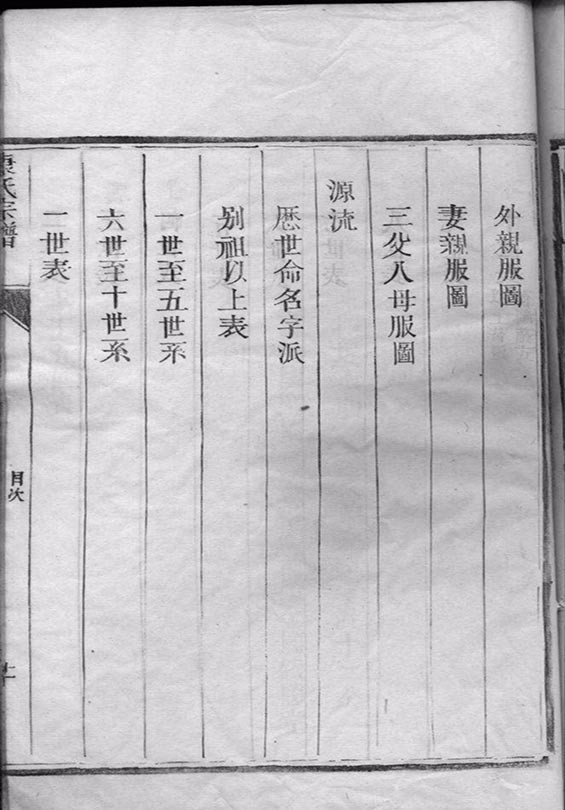 外親服圖
妻親服圖
三父八母服圖
源流
歷世命名字派
別祖以上表
一世至五世系
六世至十世系
一世表
康氏宗譜
目次